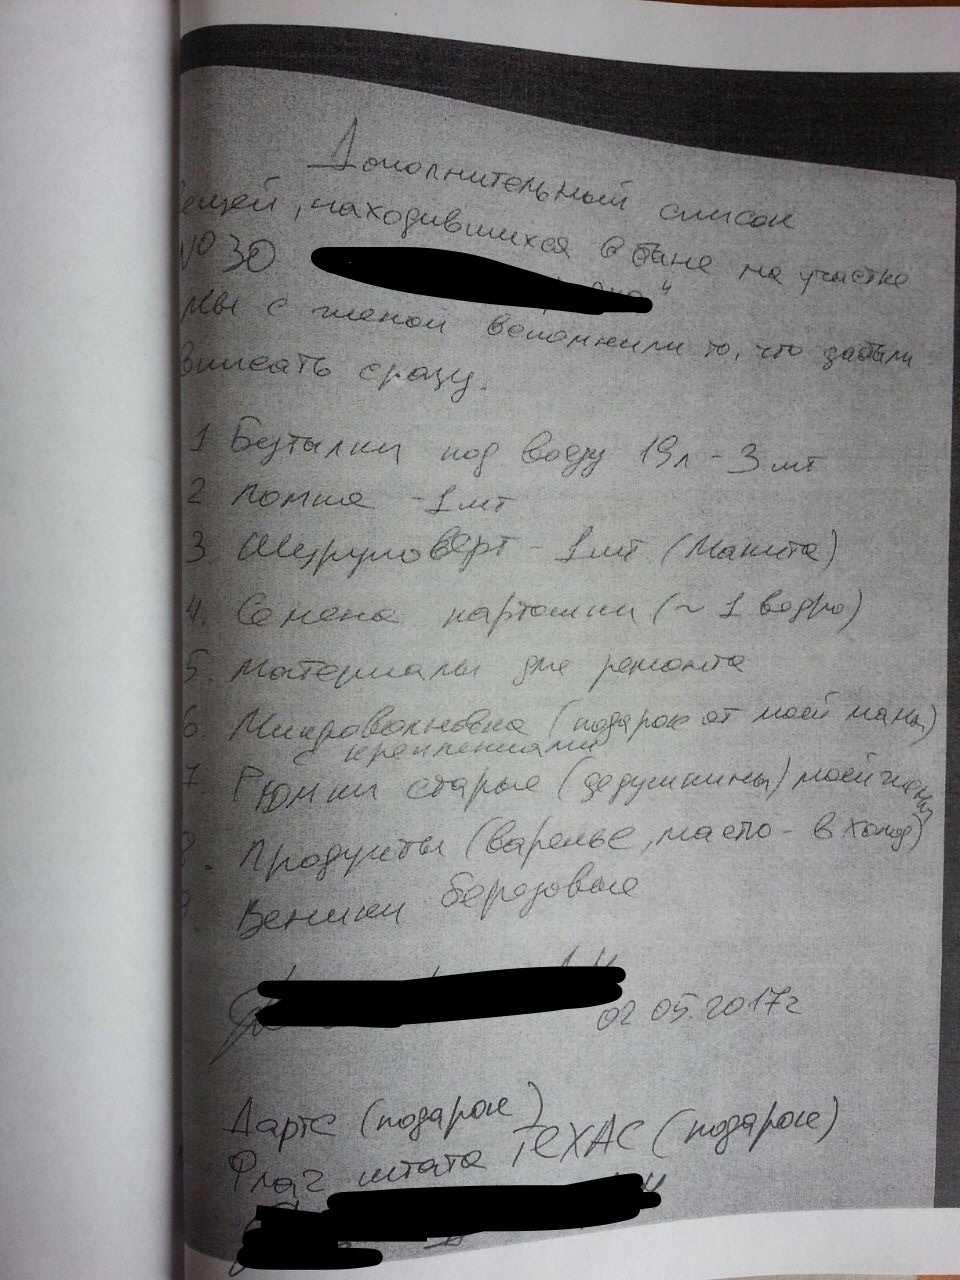 Дополнительный список
вещей, находившихся в бане на участке
№ 30
мы с женой вспомнили то, что забыли
вписать сразу.
1 Бутылки под воду 19л - 3 шт
2 Помпа - 1 шт
3 Шуруповерт - 1 шт (Макита)
4. Семена картошки (~ 1 ведро)
5. Материалы для ремонта
6 Микроволновка (подарок от моей мамы)
креплениями
7. Рюмки старые (дедушкины) моей жены
8. Продукты (варенье, масло - в холод)
9. Веники березовые
02 05.2017г
Дартс (подарок)
Флаг штата ТЕХАС (подарок)